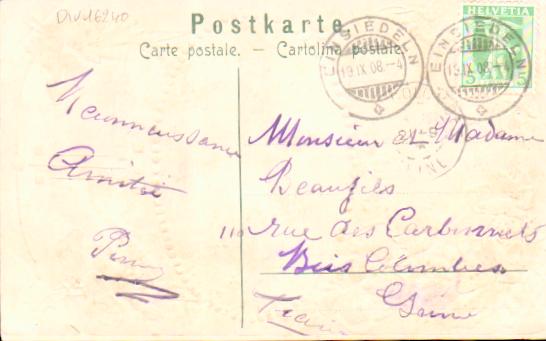 DIV16240
Postkarte
Carte postale. — Cartolina postale.
HELVETIA
EINSIEDELN
19.IX.08.-4
EINSIEDELN
19.IX.08.-4
Reconnaissance
Amitié
Monsieur et Madame
110 rue des Carbonnets
Bois Colombes
Seine